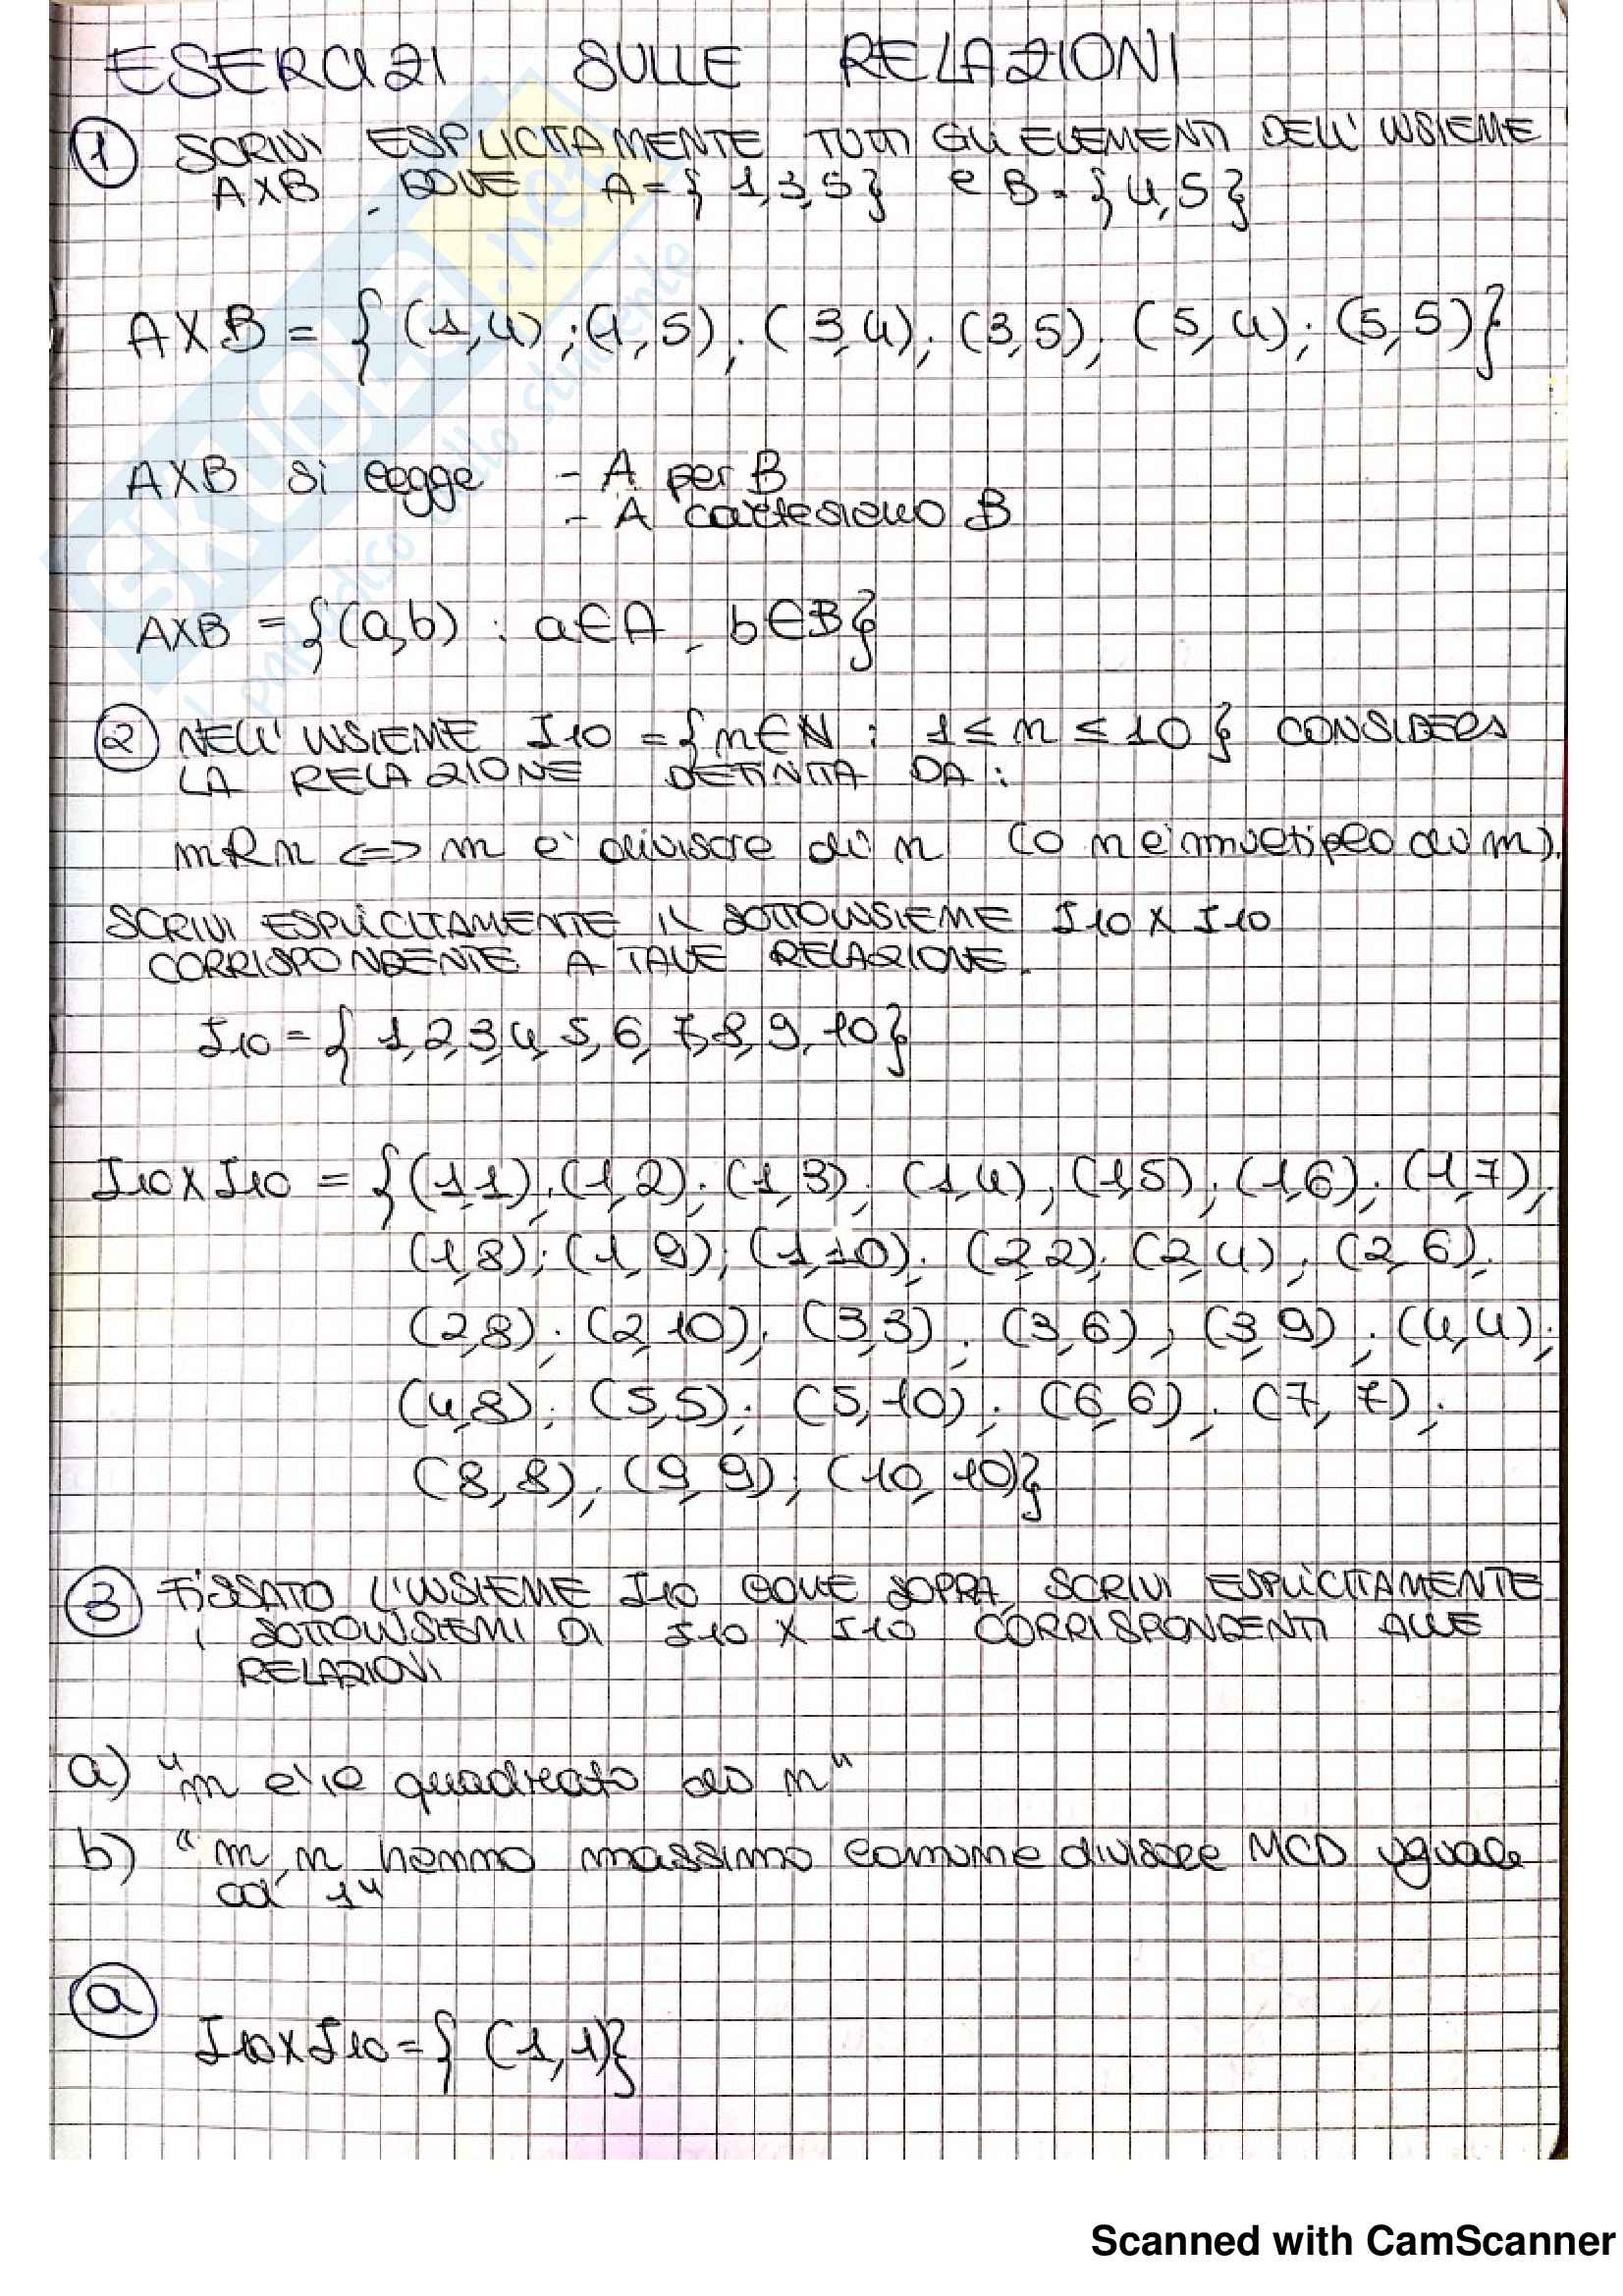 ESERCIZI SULLE RELAZIONI
1 SCRIVI ESPLICITAMENTE TUTTI GLI ELEMENTI DELL'INSIEME
AXB, DOVE A={1,3,5} e B={4,5}
AXB = {(1,4);(1,5);(3,4);(3,5);(5,4);(5,5)}
AXB si legge - A per B
- A cartesiano B
AXB = {(a,b) : a∈A, b∈B}
2 NELL'INSIEME I10 = {n∈N : 1≤n≤10} CONSIDERA
LA RELAZIONE DEFINITA DA:
mRn <=> m e' divisore di n (o n e' multiplo di m).
SCRIVI ESPLICITAMENTE IL SOTTOINSIEME I10 X I10
CORRISPONDENTE A TALE RELAZIONE.
I10 = {1,2,3,4,5,6,7,8,9,10}
I10 X I10 = {(1,1);(1,2);(1,3);(1,4);(1,5);(1,6);(1,7);
(1,8);(1,9);(1,10);(2,2);(2,4);(2,6);
(2,8);(2,10);(3,3);(3,6);(3,9);(4,4);
(4,8);(5,5);(5,10);(6,6);(7,7);
(8,8);(9,9);(10,10)}
3 FISSATO L'INSIEME I10 COME SOPRA, SCRIVI ESPLICITAMENTE
I SOTTOINSIEMI DI I10 X I10 CORRISPONDENTI ALLE
RELAZIONI
a) "m e' il quadrato di n"
b) "m, n hanno massimo comune divisore MCD uguale
ad 1"
a
I10 X I10 = {(1,1)}
SKUOLA.net
il paradiso dello studente
Scanned with CamScanner